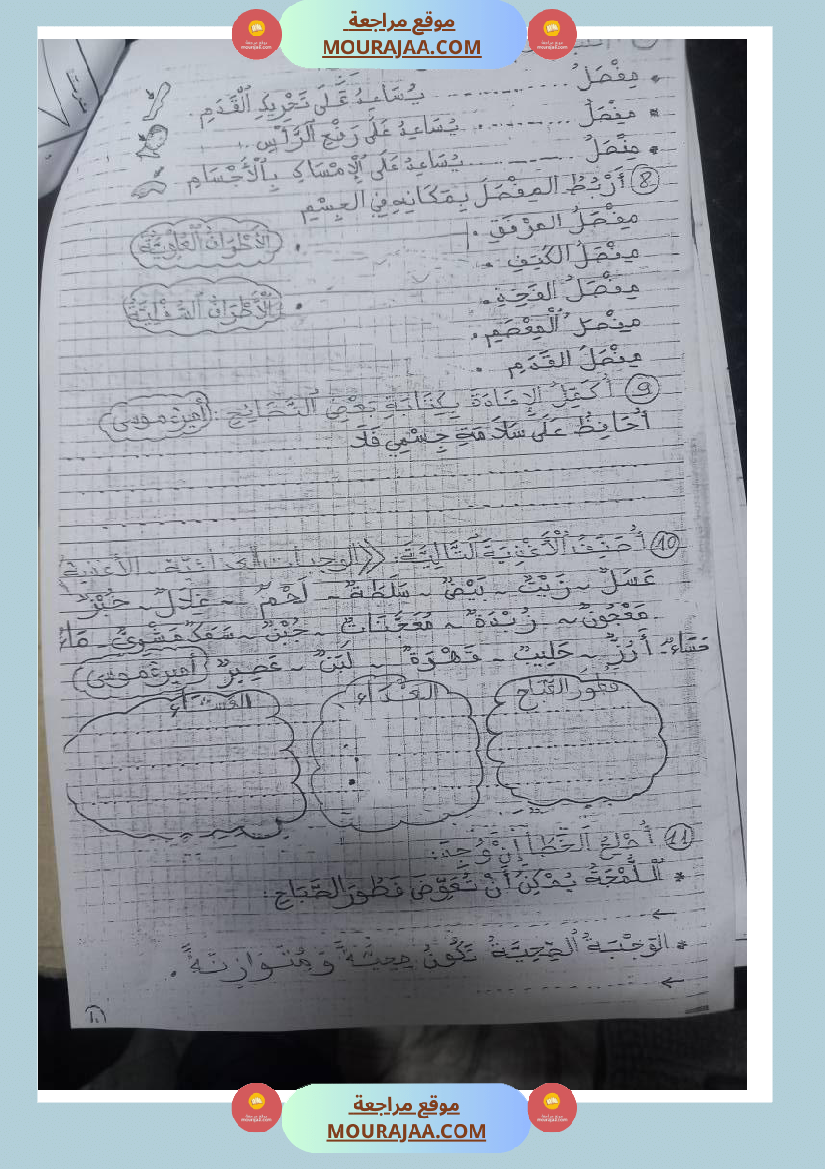 موقع مراجعة
MOURAJAA.COM
* مِفْصَلُ ............ يُسَاعِدُ عَلَى تَحْرِيكِ الْقَدَمِ.
* مِفْصَلُ ............ يُسَاعِدُ عَلَى رَفْعِ الرَّأْسِ.
* مِفْصَلُ ............ يُسَاعِدُ عَلَى الْإِمْسَاكِ بِالْأَجْسَامِ
8 أَرْبُطُ المِفْصَلَ بِمَكَانِهِ فِي الجِسْمِ
مِفْصَلُ المِرْفَقِ .
الأَطْرَافُ العُلْوِيَّةُ
مِفْصَلُ الكَتِفِ .
مِفْصَلُ الفَخِذِ .
الْأَطْرَافُ السُّفْلِيَّةُ
مِفْصَلُ الْمِعْصَمِ .
مِفْصَلُ القَدَمِ .
9 أُكْمِلُ الْإِفَادَةَ بِكِتَابَةِ بَعْضِ النَّصَائِحِ : أميرة موسى
أُحَافِظُ عَلَى سَلَامَةِ جِسْمِي فَلَا
10 أُصَنِّفُ الْأَغْذِيَةَ التَّالِيَةَ: الوجبات الغذائية - الأغذية
عَسَلٌ - زَيْتٌ - بَيْضٌ - سَلَطَةٌ - لَحْمٌ - غِلَالٌ - خُبْزٌ
مَعْجُونٌ - زُبْدَةٌ - مُعَجَّنَاتٌ - جُبْنٌ - سَمَكٌ مَشْوِيٌّ - مَاءٌ
حَسَاءٌ - أَرُزٌّ - حَلِيبٌ - قَهْوَةٌ - لَبَنٌ - عَصِيرٌ أميرة موسى
فَطُورُ الصَّبَاحِ
الغَدَاءُ
العَشَاءُ
11 أُصْلِحُ الخَطَأَ إِنْ وُجِدَ:
* اللُّمْجَةُ يُمْكِنُ أَنْ تُعَوِّضَ فَطُورَ الصَّبَاحِ:
* الوَجْبَةُ الصِّحِيَّةُ تَكُونُ صِحِيَّةً وَ مُتَوَازِنَةً.
موقع مراجعة
MOURAJAA.COM